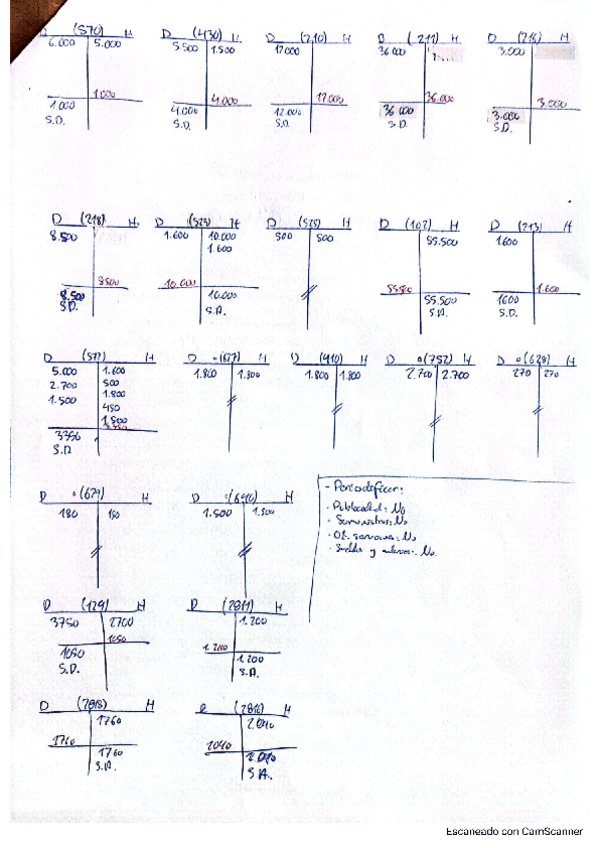 D (570) H D (430) H D (210) H D (211) H D (216) H
6.000 5.000 5.500 1.500 12.000 36.000 3.000
1.000 4.000 12.000 36.000 3.000
1.000 4.000 12.000 36.000 3.000
S.D. S.D. S.D. S.D.
D (218) H D (523) H D (525) H D (102) H D (213) H
8.500 1.600 10.000 500 500 55.500 1600
1.600
8500 10.000 55.500 1.600
8.500 10.000 55.500 1600
S.D. S.A. S.A. S.D.
D (572) H D (677) H D (910) H D (752) H D (628) H
5.000 1.600 1.800 1.800 1.800 1.800 2.700 2.700 270 270
2.700 500
1.500 1.800
450
3750
S.D
D (679) H D H
180 180 1.500 1.500
D (129) H D (2811) H
3750 2700 1.200
1050 1.200
1050 1.200
S.D. S.A.
D H (2816) H
1760 2.040
1760 2040
1760 2.040
S.A. S.A.
- Publicidad: No
- Suministros: No
- Ot. servicios: No
- Sueldos y salarios: No.
Escaneado con CamScanner